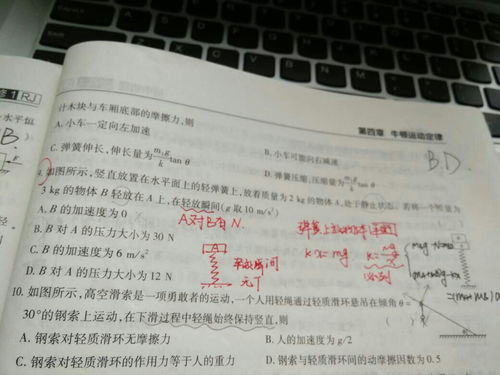 修1 RJ
第四章 牛顿运动定律
水平面
计木块与车厢底部的摩擦力,则
A. 小车一定向左加速
B. 小车可能向右减速
B.D.
C. 弹簧伸长,伸长量为m₁g/k tan θ
D. 弹簧压缩,压缩量为m₁g/k tan θ
9. 如图所示,竖直放置在水平面上的轻弹簧上,放着质量为 2 kg 的物体 A,处于静止状态。若将一个质量为
3 kg 的物体 B 轻放在 A 上,在轻放瞬间(g 取 10 m/s²)
A. B 的加速度为 0
A对B有N.
B. B 对 A 的压力大小为 30 N
kx=mg
C. B 的加速度为 6 m/s²
A
D. B 对 A 的压力大小为 12 N
10. 如图所示,高空滑索是一项勇敢者的运动,一个人用轻绳通过轻质滑环悬吊在倾角 θ=
30°的钢索上运动,在下滑过程中轻绳始终保持竖直,则
( )
A. 钢索对轻质滑环无摩擦力
B. 人的加速度为 g/2
C. 钢索对轻质滑环的作用力等于人的重力
D. 钢索与轻质滑环间的动摩擦因数为 0.5